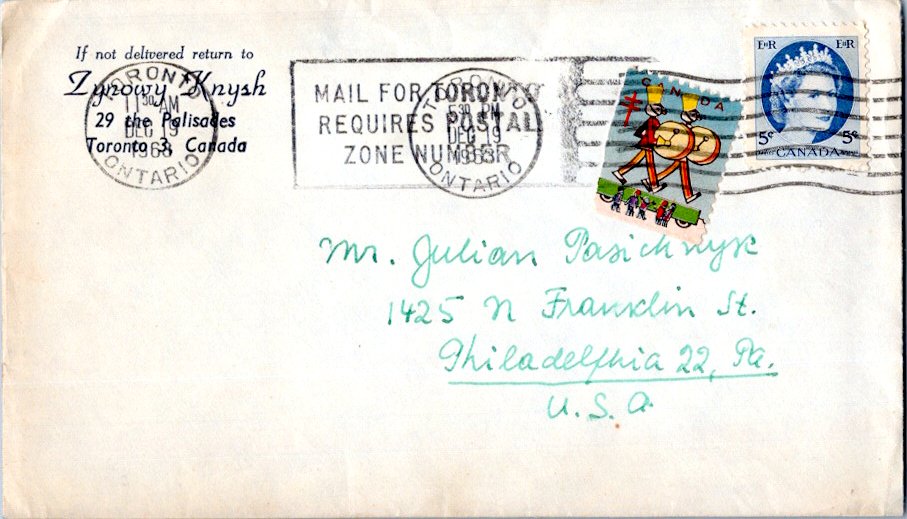 If not delivered return to
Zynowy Knysh
29 the Palisades
Toronto 3, Canada
TORONTO
11 30 AM
DEC 19
1963
ONTARIO
MAIL FOR TORONTO
REQUIRES POSTAL
ZONE NUMBER
TORONTO
630 PM
DEC 19
1963
ONTARIO
CANADA
EIIR EIIR
5c 5c
CANADA
Mr. Julian Pasicknyk
1425 N Franklin St.
Philadelphia 22, Pa.
U.S.A